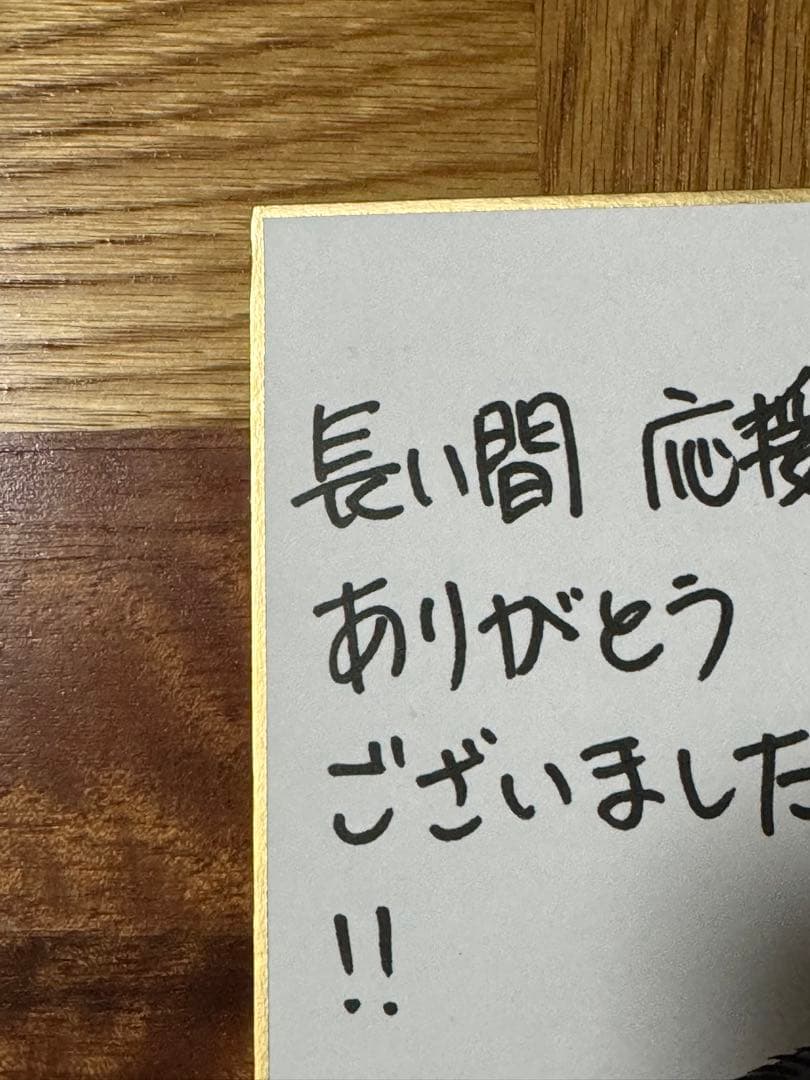 長い間 応援
ありがとう
ございました
!!